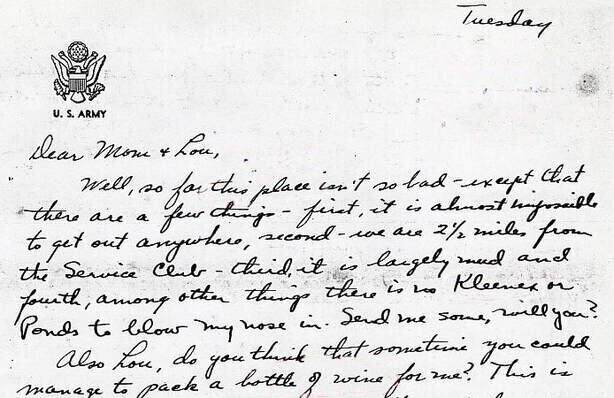 Tuesday
U. S. ARMY
Dear Mom & Lou,
Well, so far this place isn't so bad - except that
there are a few things - first, it is almost impossible
to get out anywhere, second - we are 2½ miles from
the Service Club - third, it is largely mud and
fourth, among other things there is no Kleenex or
Ponds to blow my nose in. Send me some, will you?
Also Lou, do you think that sometime you could
manage to pack a bottle of wine for me? This is